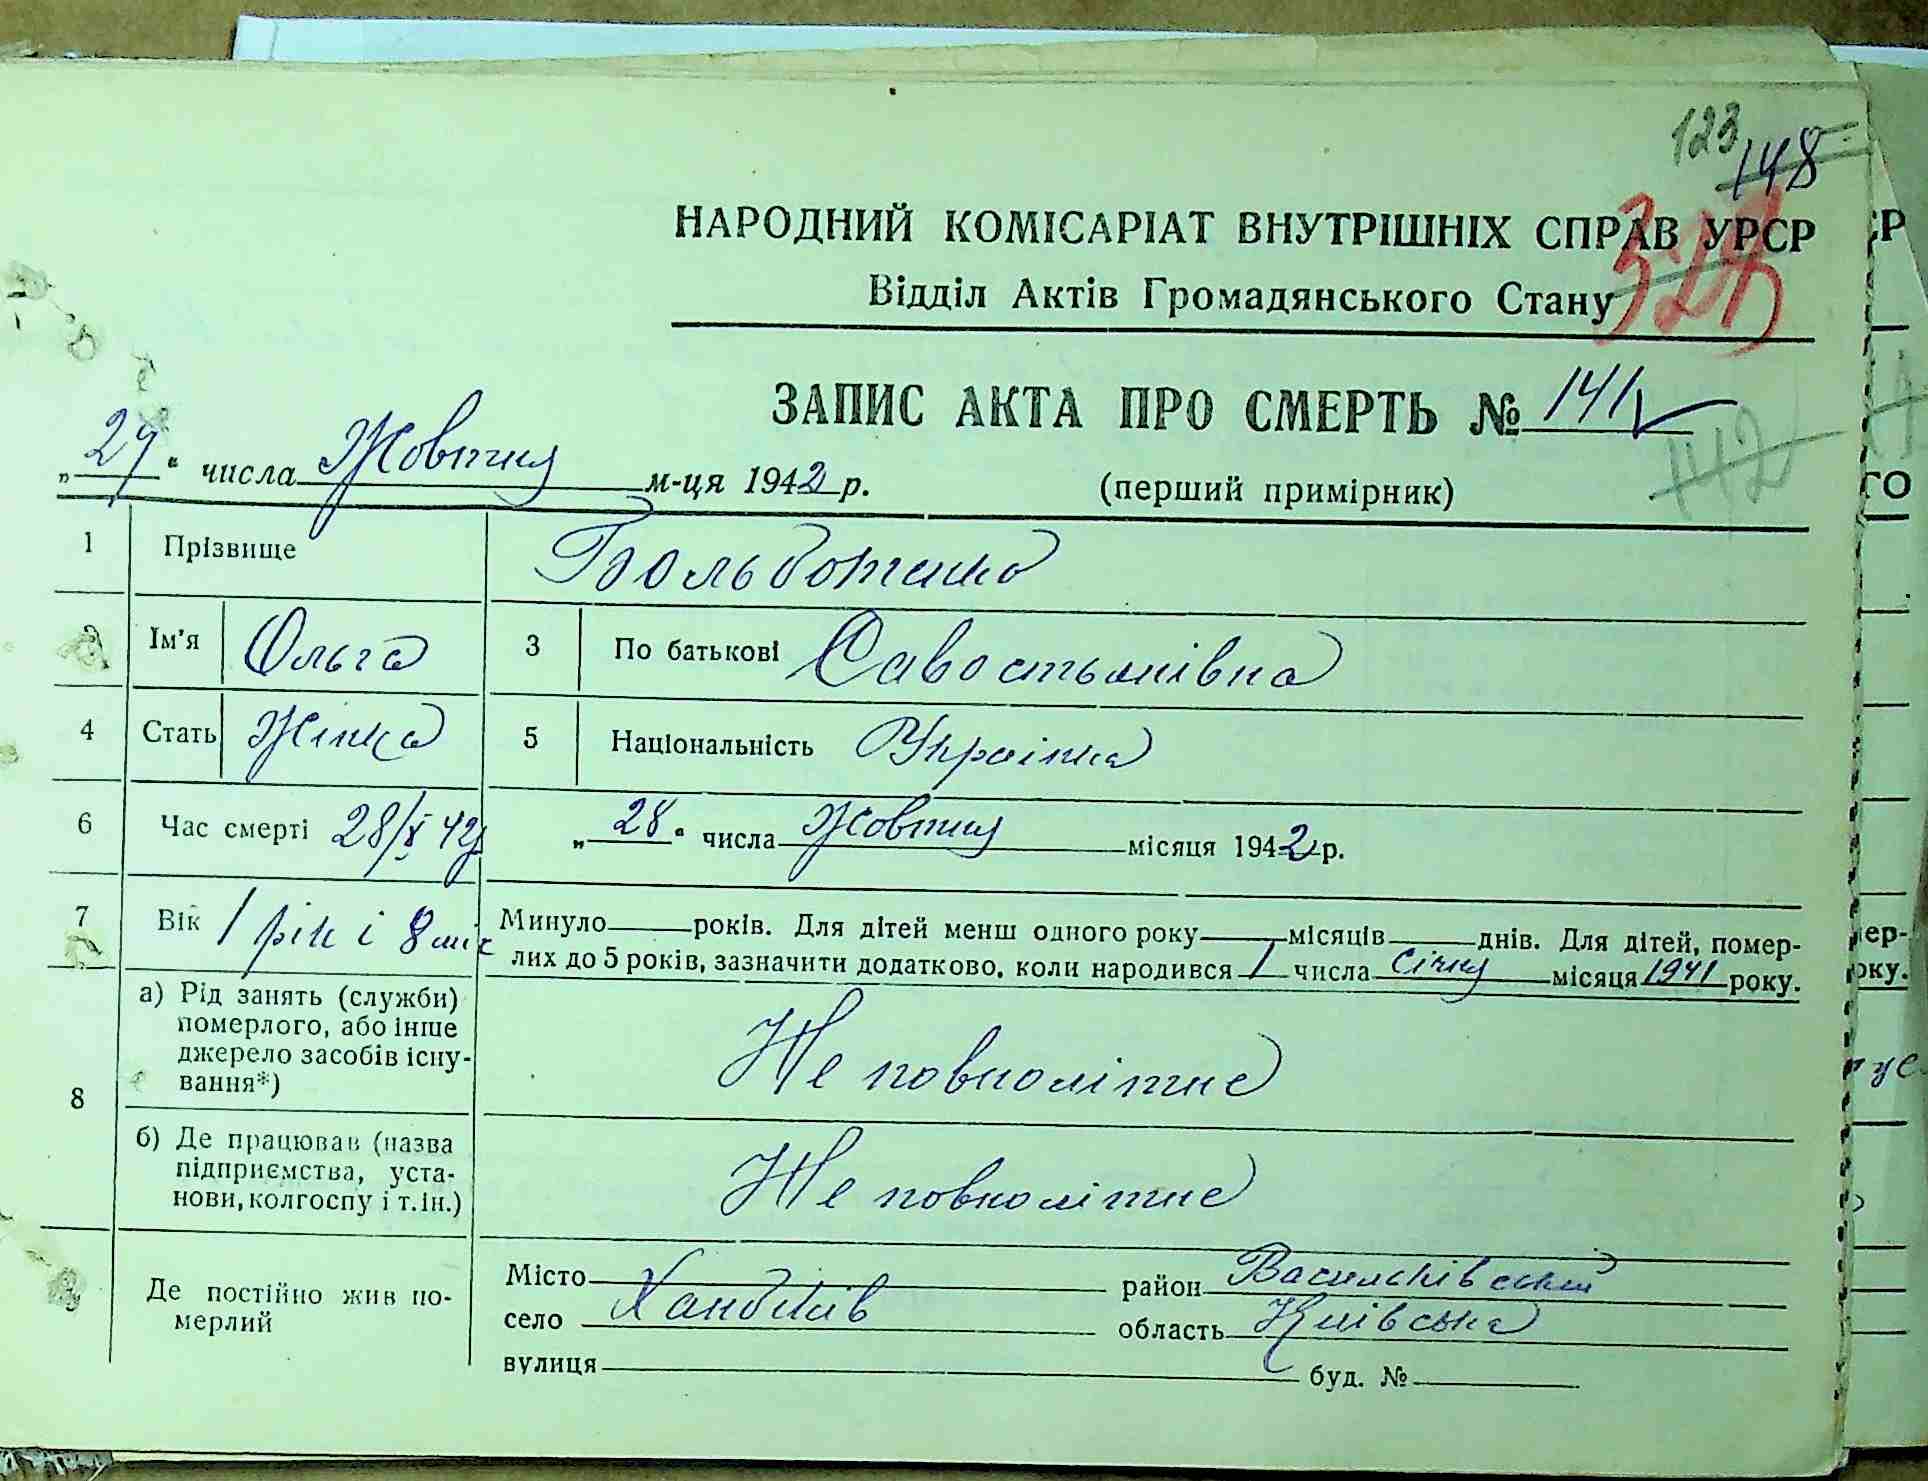 123
148
НАРОДНИЙ КОМІСАРІАТ ВНУТРІШНІХ СПРАВ УРСР
Відділ Актів Громадянського Стану
ЗАПИС АКТА ПРО СМЕРТЬ № 141
142
„29“ числа Жовтня м-ця 1942 р. (перший примірник)
1 Прізвище Больботенко
2 Ім'я Ольга 3 По батькові Савостьянівна
4 Стать Жінка 5 Національність Украінка
6 Час смерті 28/X 42р „28“ числа Жовтня місяця 1942 р.
7 Вік 1 рік і 8 міс Минуло років. Для дітей менш одного року місяців днів. Для дітей, помер-
лих до 5 років, зазначити додатково, коли народився 1 числа Січня місяця 1941 року.
8 а) Рід занять (служби)
померлого, або інше
джерело засобів існу-
вання*)
Не повнолітне
б) Де працював (назва
підприємства, уста-
нови, колгоспу і т.ін.)
Не повнолітне
Де постійно жив по-
мерлий
Місто район Васильківський
село область Київська
вулиця буд. №